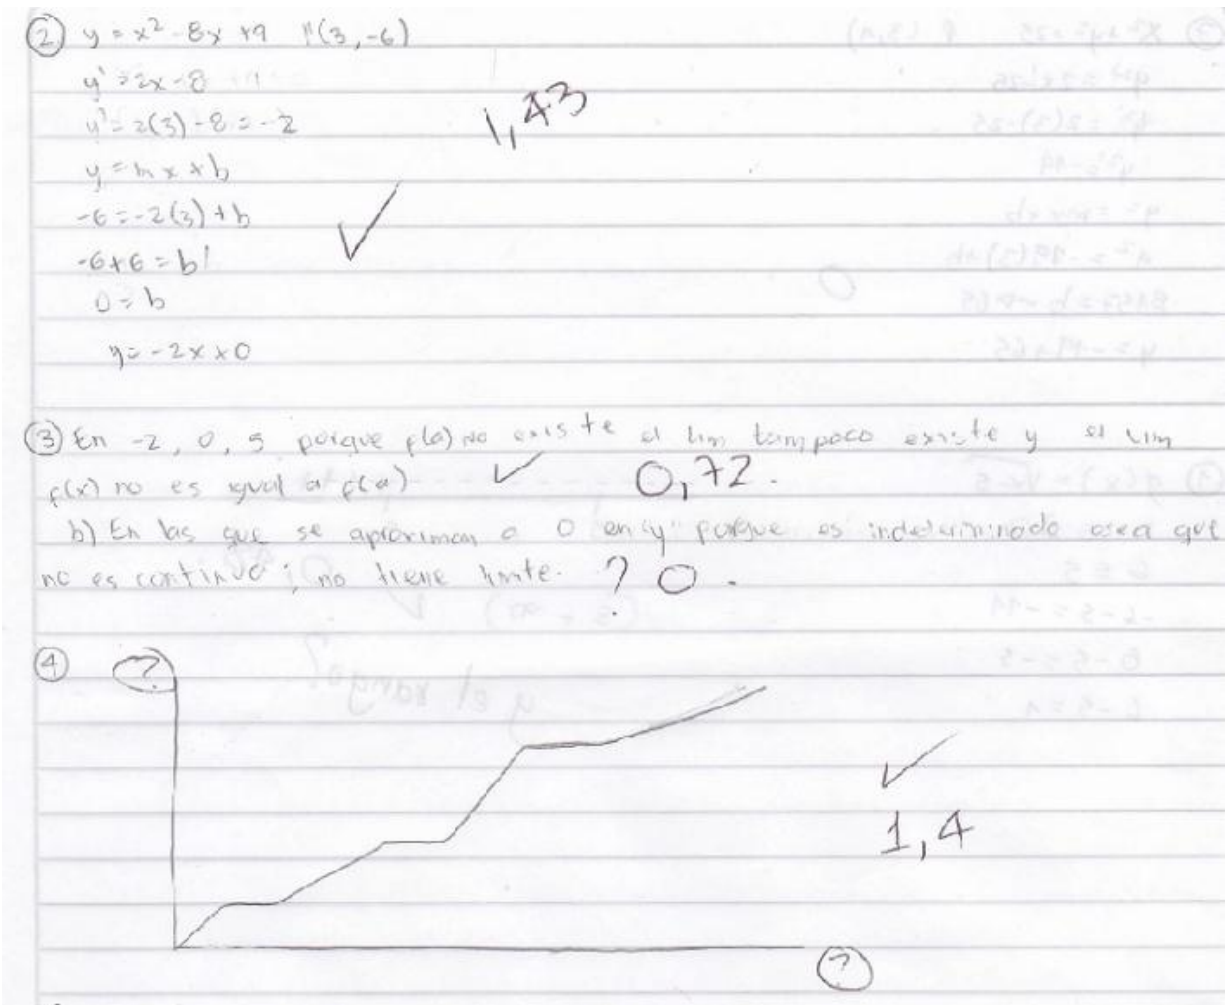 ② y = x² - 8x + 9 P(3, -6)
y' = 2x - 8
y' = 2(3) - 8 = -2
1,43
y = mx + b
-6 = -2(3) + b
✓
-6 + 6 = b
0 = b
y = -2x x 0
③ En -2, 0, 5 porque f(a) no existe el lim tampoco existe y el lim
f(x) no es igual a f(a) ✓ 0,72.
b) En las que se aproximan a 0 en "y" porque es indeterminado osea que
no es continua; no tiene limite. ? 0.
④ ?
✓
1,4
?